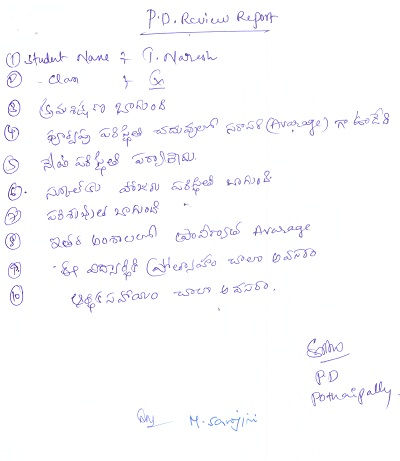 P.D. Review Report
① Student Name : T. Naresh
② Class :
③ క్రమశిక్షణ బాగుంది
④ పూర్వపు పరిస్థితి చదువులో సరాసరి (Avarage) గా ఉండేది
⑤ నేటి పరిస్థితి పర్వాలేదు.
⑥. స్కూల్‌లో భోజన పరిస్థితి బాగుంది
⑦ పరిశుభ్రత బాగుంది
⑧ ఇతర అంశాలలో ప్రావీణ్యత Avarage
⑨ ఈ విద్యార్థికి ప్రోత్సాహం చాలా అవసరం
⑩ ఆర్థిక సహాయం చాలా అవసరం.
PD
Pothaipally.
By M. Sarojini